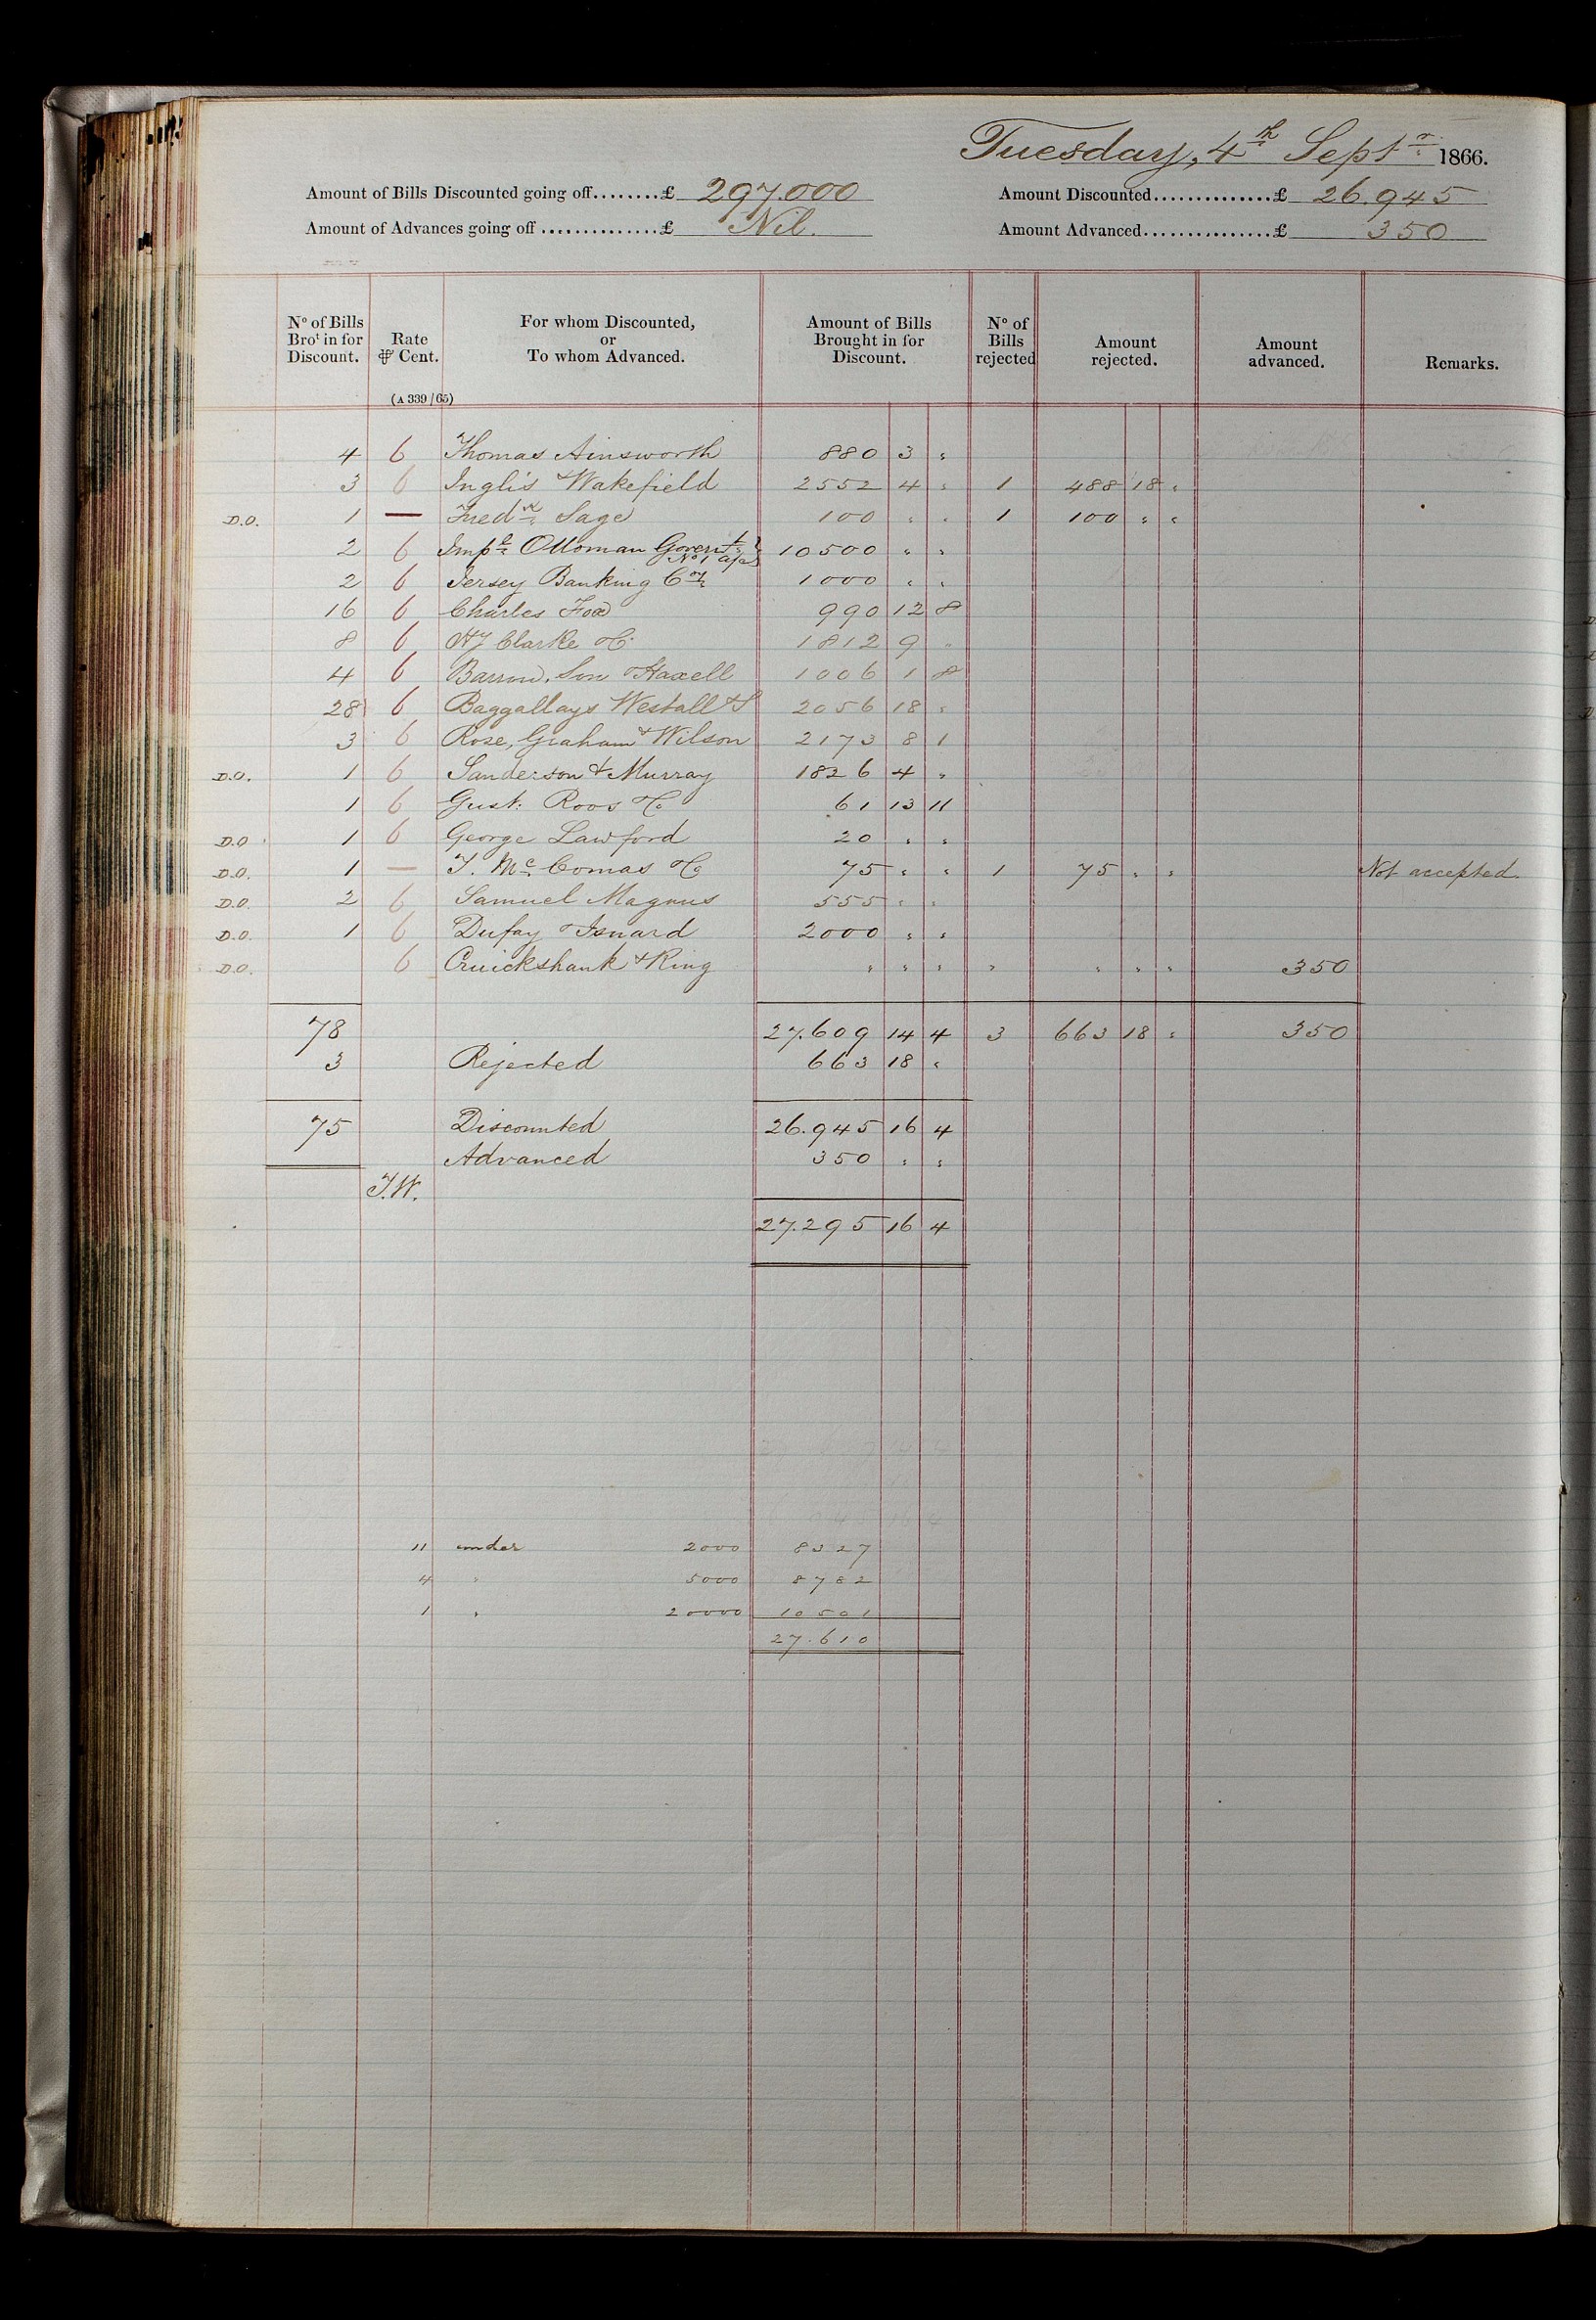 Tuesday, 4th Septr 1866.
Amount of Bills Discounted going off........£ 297.000 Amount Discounted..............£ 26.945
Amount of Advances going off ..............£ Nil. Amount Advanced...............£ 350
No of Bills Brot in for Discount. Rate ⅌ Cent. For whom Discounted, or To whom Advanced. Amount of Bills Brought in for Discount. No of Bills rejected Amount rejected. Amount advanced. Remarks.
(A 339/65)
4 6 Thomas Ainsworth 880 3 "
3 6 Inglis & Wakefield 2552 4 " 1 488 18 "
D.O. 1 — Fredk Sage 100 " " 1 100 " "
2 6 Impl Ottoman Governt No 1 a/c 10500 " "
2 6 Jersey Banking Coy 1000 " "
16 6 Charles Fox 990 12 8
8 6 Clarke & Co 1812 9 "
4 6 Barrow, Son & Haxell 1006 1 8
28 6 Baggallays Westall & S 2056 18 "
3 6 Rose, Graham & Wilson 2173 8 1
D.O. 1 6 Sanderson & Murray 1826 4 "
1 6 Gust: Roos & Co 61 13 11
D.O. 1 6 George Lawford 20 " "
D.O. 1 — J. Mc Comas & Co 75 " " 1 75 " " Not accepted.
D.O. 2 6 Samuel Magnus 555 " "
D.O. 1 6 Dufay & Isnard 2000 " "
D.O. 6 Cruickshank & King " " " " " " " 350
78 27.609 14 4 3 663 18 " 350
3 Rejected 663 18 "
75 Discounted 26.945 16 4
Advanced 350 " "
J.W.
27.295 16 4
11 under 2000 8327
4 " 5000 8782
1 " 20000 10501
27.610